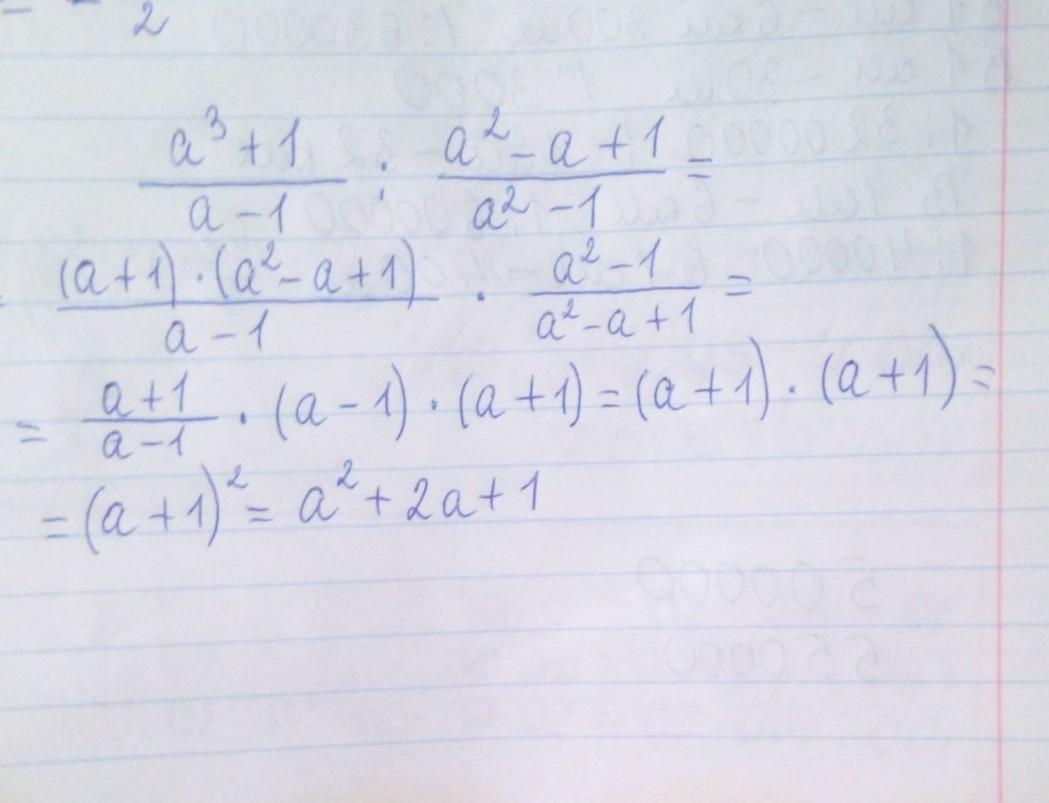 2
a³+1/a-1 : a²-a+1/a²-1 =
(a+1)·(a²-a+1)/a-1 · a²-1/a²-a+1 =
= a+1/a-1 · (a-1)·(a+1)=(a+1)·(a+1)=
=(a+1)²= a²+2a+1